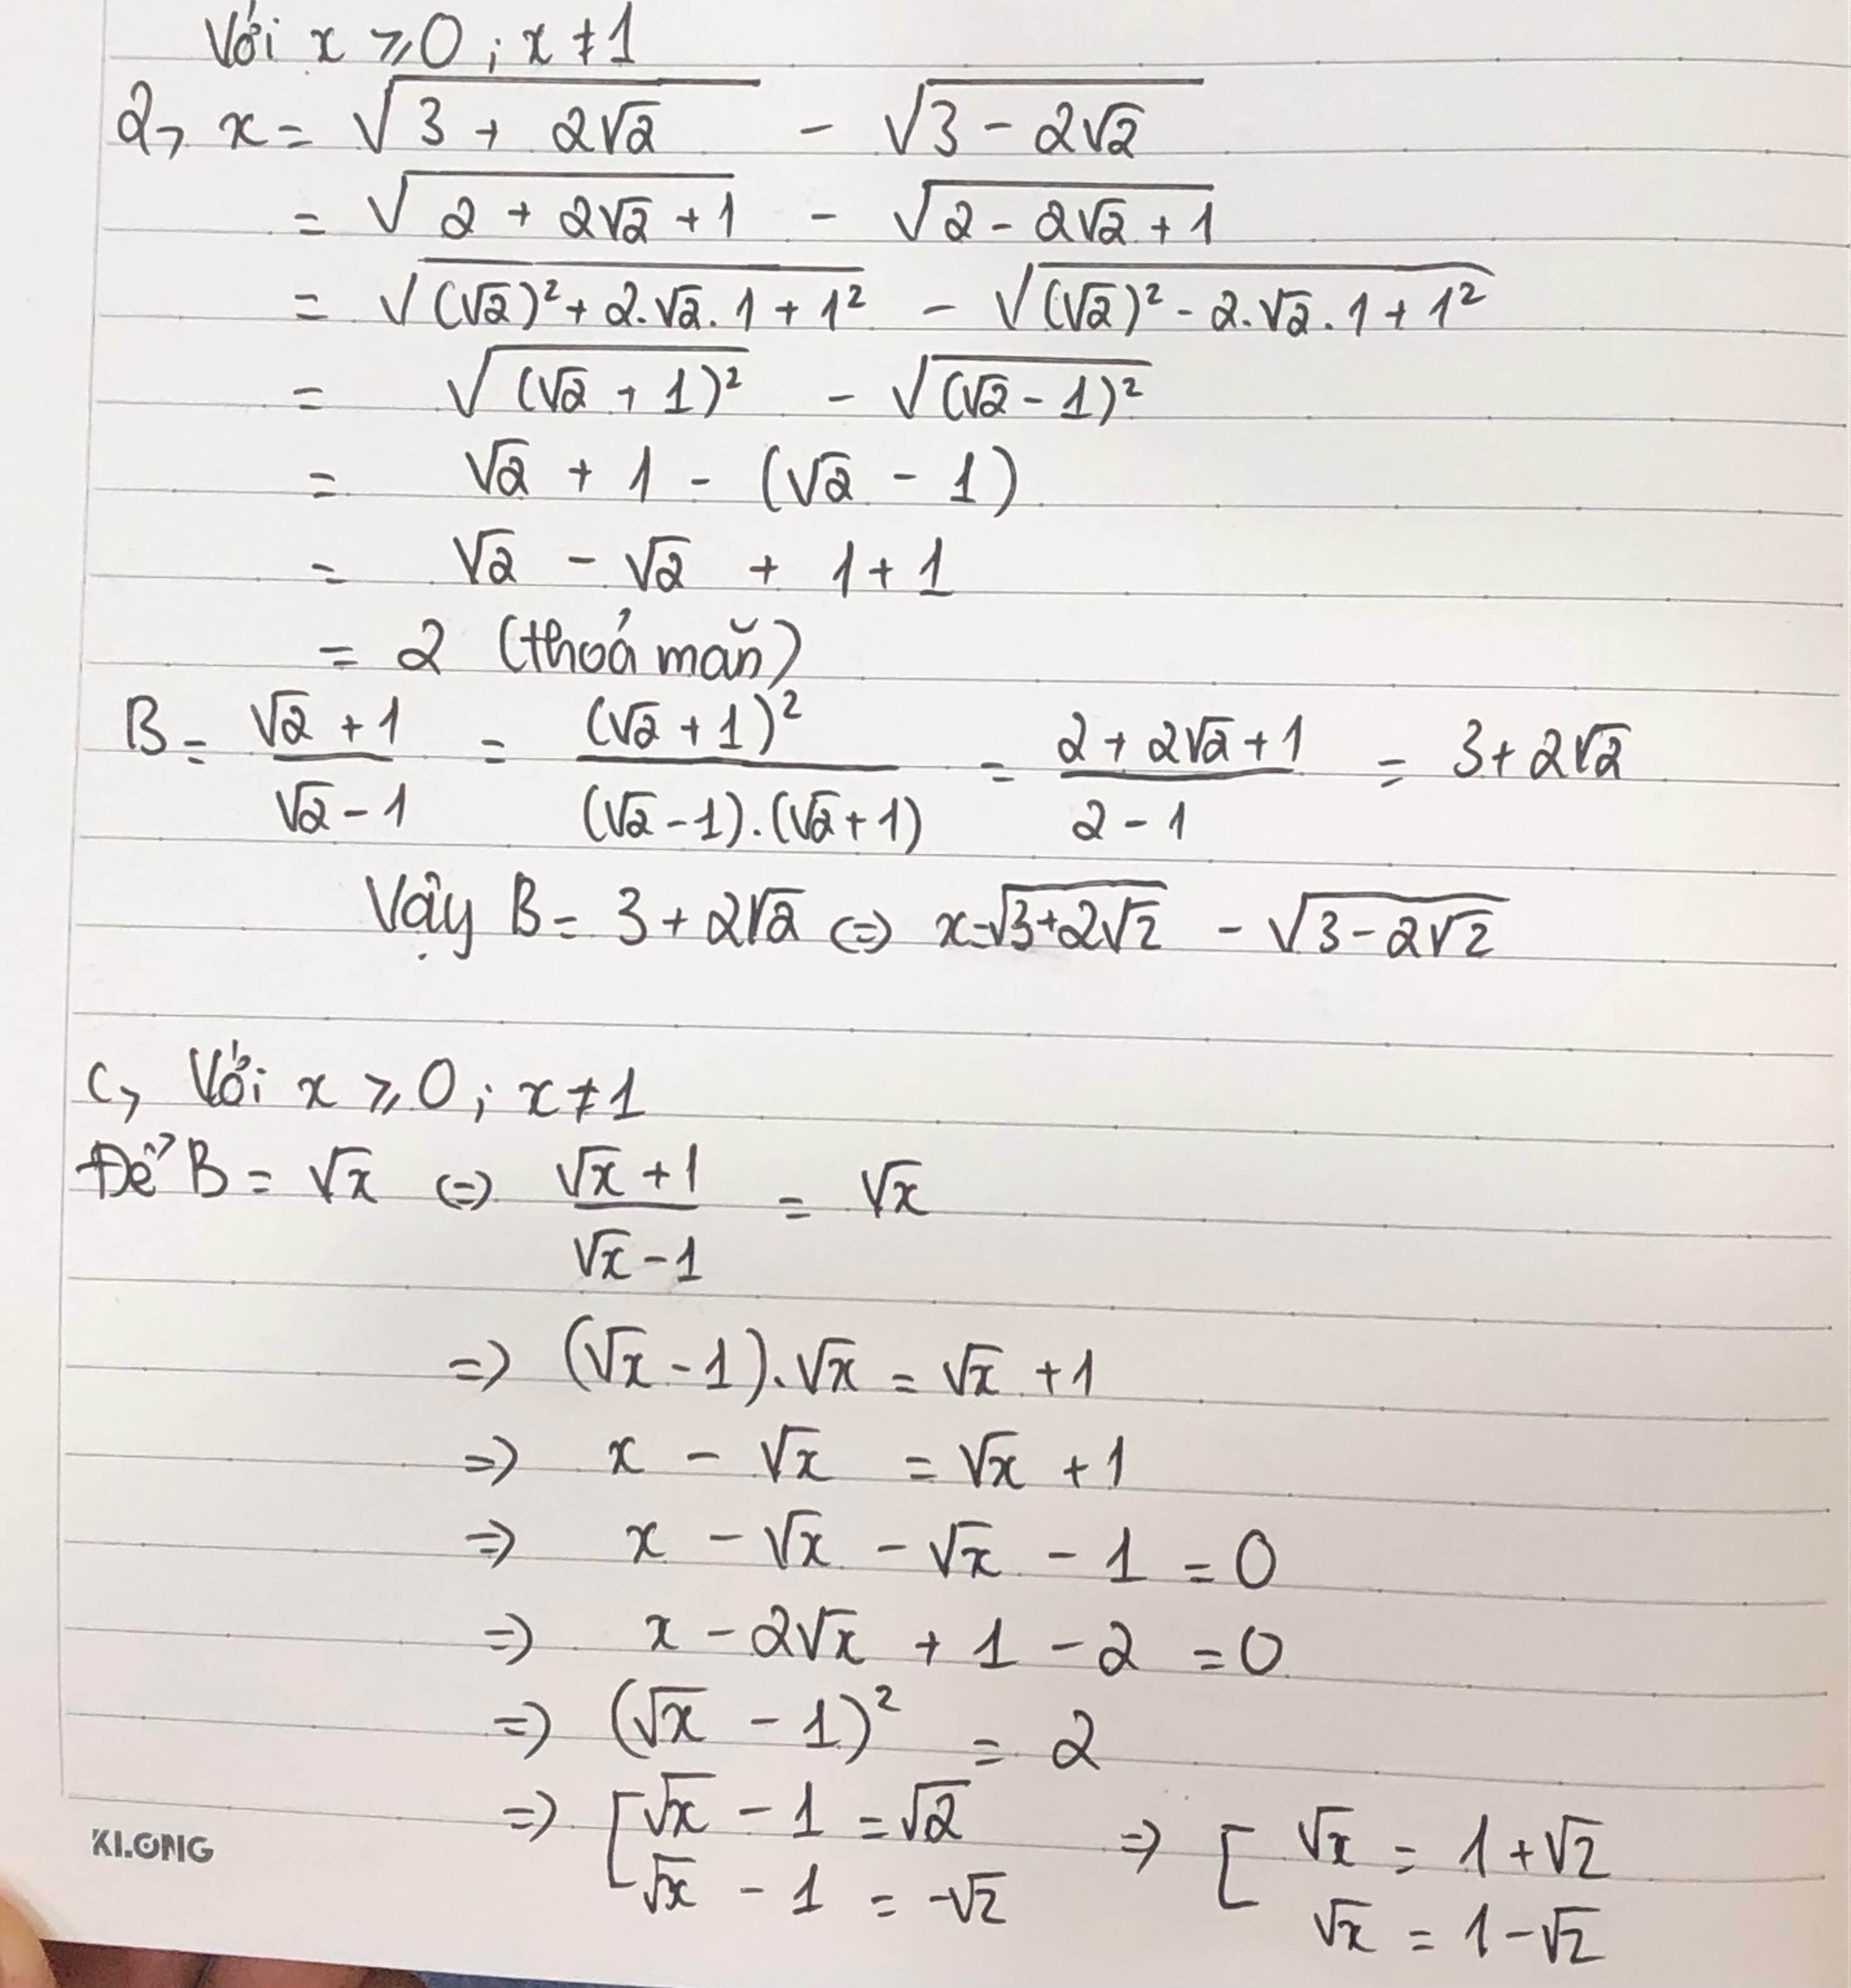 Với x ≥ 0 ; x ≠ 1
2, x = √(3 + 2√2) - √(3 - 2√2)
= √(2 + 2√2 + 1) - √(2 - 2√2 + 1)
= √((√2)² + 2.√2.1 + 1²) - √((√2)² - 2.√2.1 + 1²)
= √((√2 + 1)²) - √((√2 - 1)²)
= √2 + 1 - (√2 - 1)
= √2 - √2 + 1 + 1
= 2 (thoả mãn)
B = (√2 + 1)/(√2 - 1) = (√2 + 1)²/((√2 - 1).(√2 + 1)) = (2 + 2√2 + 1)/(2 - 1) = 3 + 2√2
Vậy B = 3 + 2√2 ⇔ x = √(3 + 2√2) - √(3 - 2√2)
C, Với x ≥ 0 ; x ≠ 1
Để B = √x ⇔ (√x + 1)/(√x - 1) = √x
⇒ (√x - 1).√x = √x + 1
⇒ x - √x = √x + 1
⇒ x - √x - √x - 1 = 0
⇒ x - 2√x + 1 - 2 = 0
⇒ (√x - 1)² = 2
⇒ [ √x - 1 = √2 ⇒ [ √x = 1 + √2
√x - 1 = -√2 √x = 1 - √2
KLONG